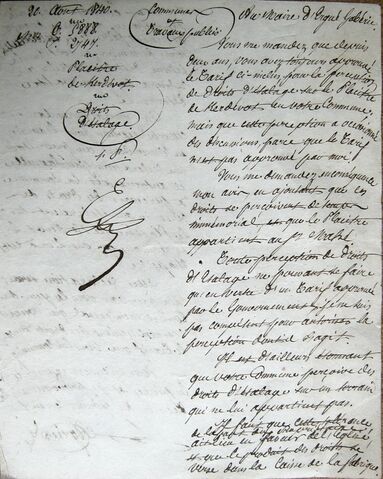 20 Août 1840.
Communes
et
Travaux publics
Au Maire d'Ergué Gabéric
Placître
de Kerdévot
Droits
d'étalage
Vous me mandez que depuis
deux ans, vous avez toujours approuvé
le Tarif ci-inclus, pour la perception
de Droits d'Etalage sur le Placître
de Kerdévot, en votre Commune,
mais que cette perception a occasionné
des discussions, parce que le Tarif
n'est pas approuvé par moi.
Vous me demandez, en conséquence,
mon avis en ajoutant que ces
droits se perçoivent de tems
immémorial, et que le Placître
appartient au Sr
Toute perception de Droits
d'Etalage ne pouvant se faire
qu'en vertu d'un Tarif approuvé
par le Gouvernement, je ne suis
pas compétent pour autoriser la
perception dont il s'agit.
Il est d'ailleurs étonnant
que votre Commune perçoive des
droits d'Etalage sur un terrain
qui ne lui appartient pas.
Il faut que cette
ait lieu en faveur de l'Eglise
et que le produit des droits se
verse dans la caisse de la fabrique.